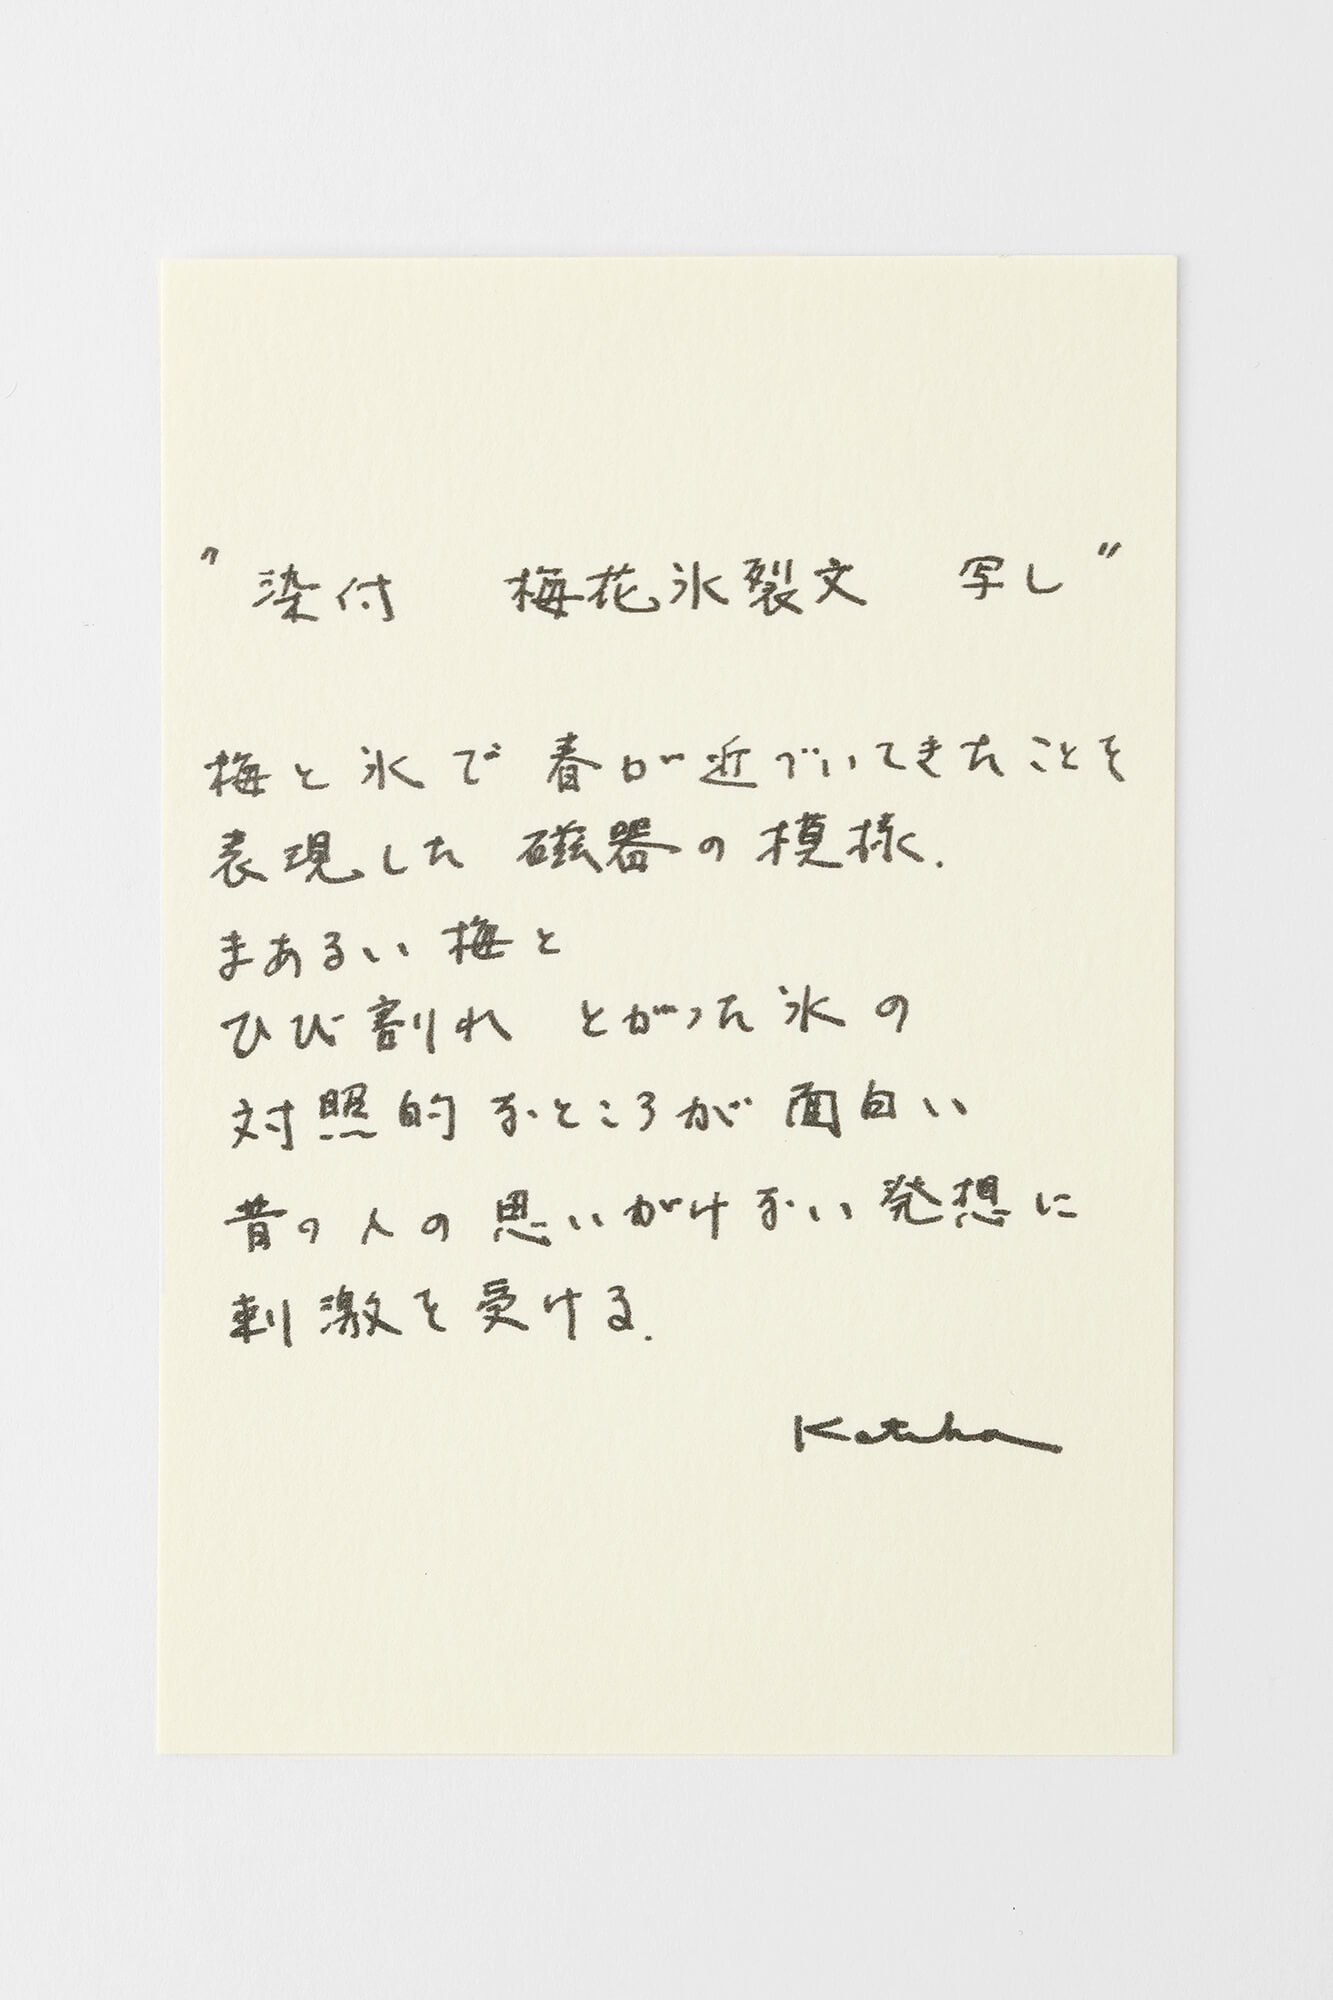 "染付 梅花氷裂文 写し"
梅と氷で春が近づいてきたことを
表現した磁器の模様.
まあるい梅と
ひび割れ とがった氷の
対照的なところが面白い
昔の人の思いがけない発想に
刺激を受ける.
Katuha